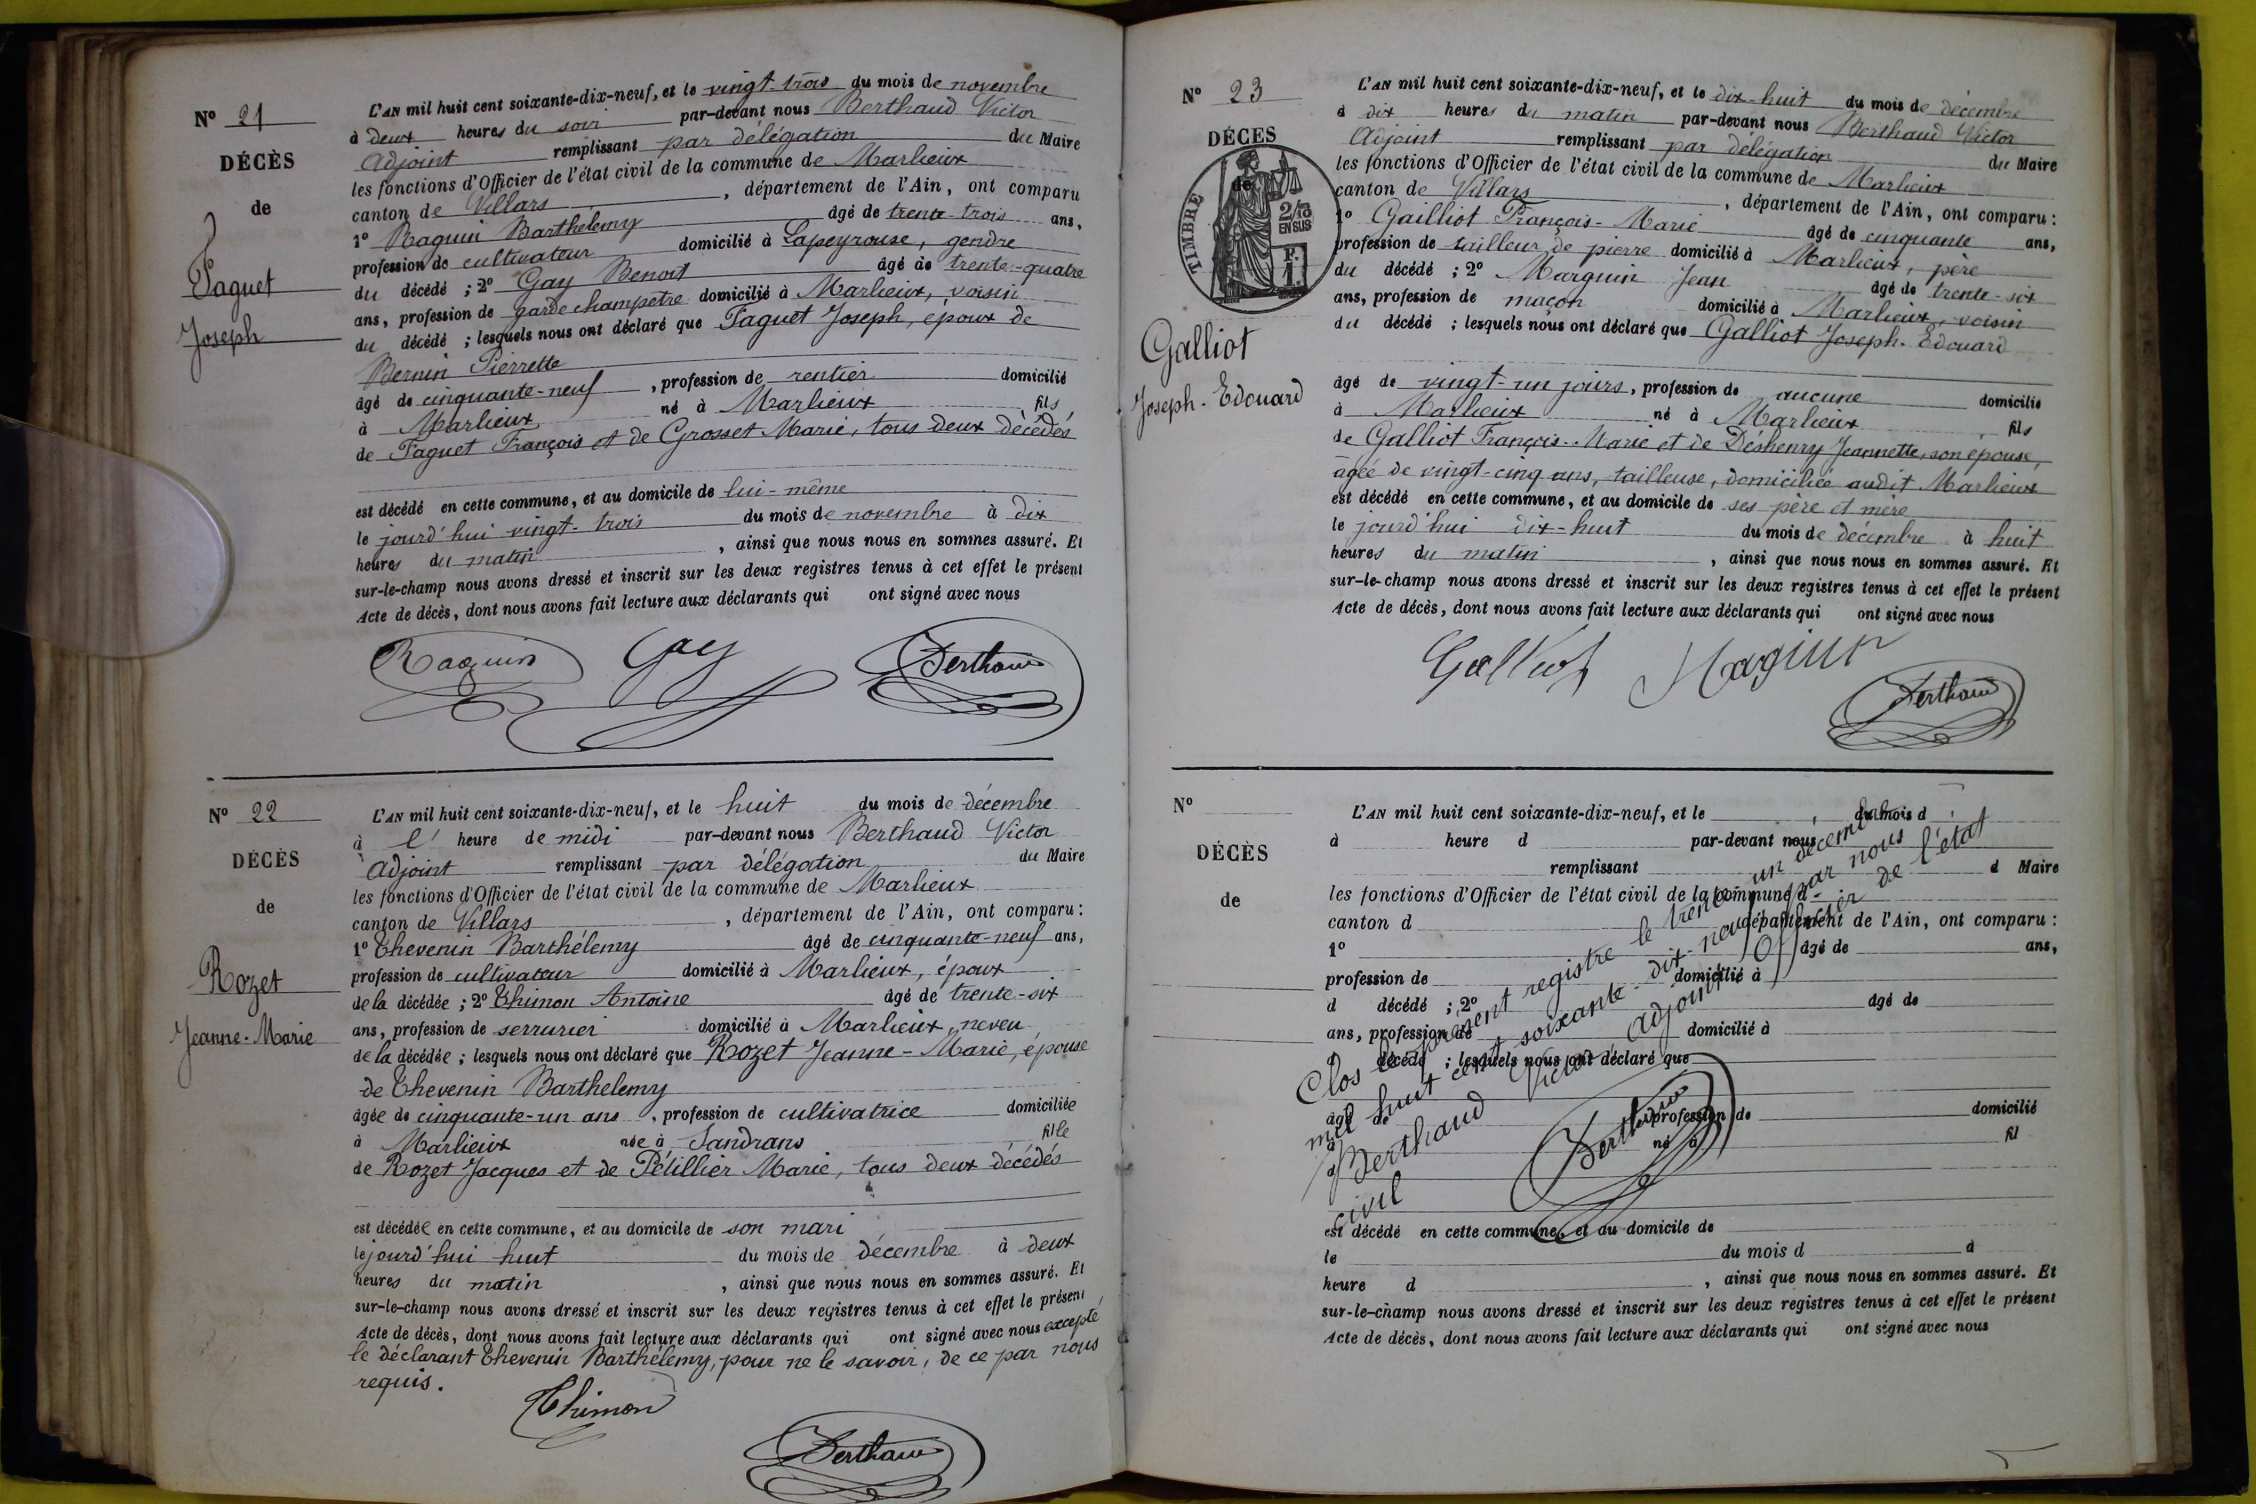 N° 21
DÉCÈS
de
Faguet
Joseph
L'AN mil huit cent soixante-dix-neuf, et le vingt-trois du mois de novembre
à deux heures du soir par-devant nous Berthaud Victor
Adjoint remplissant par délégation du Maire
les fonctions d'Officier de l'état civil de la commune de Marlieux
canton de Villars, département de l'Ain, ont comparu
1° Raguin Barthélemy âgé de trente-trois ans,
profession de cultivateur domicilié à Lapeyrouse, gendre
du décédé ; 2° Gay Benoit âgé de trente-quatre
ans, profession de garde champetre domicilié à Marlieux, voisin
du décédé ; lesquels nous ont déclaré que Faguet Joseph, époux de
Bernin Pierrette
âgé de cinquante-neuf, profession de rentier domicilié
à Marlieux né à Marlieux fils
de Faguet François et de Grosset Marie, tous deux décédés
est décédé en cette commune, et au domicile de lui-même
le jourd'hui vingt-trois du mois de novembre à dix
heures du matin, ainsi que nous nous en sommes assuré. Et
sur-le-champ nous avons dressé et inscrit sur les deux registres tenus à cet effet le présent
Acte de décès, dont nous avons fait lecture aux déclarants qui ont signé avec nous
Raguin Gay Berthaud
N° 22
DÉCÈS
de
Rozet
Jeanne-Marie
L'AN mil huit cent soixante-dix-neuf, et le huit du mois de décembre
à l' heure de midi par-devant nous Berthaud Victor
Adjoint remplissant par délégation du Maire
les fonctions d'Officier de l'état civil de la commune de Marlieux
canton de Villars, département de l'Ain, ont comparu :
1° Thevenin Barthélemy âgé de cinquante-neuf ans,
profession de cultivateur domicilié à Marlieux, époux
de la décédée ; 2° Thimon Antoine âgé de trente-six
ans, profession de serrurier domicilié à Marlieux, neveu
de la décédée ; lesquels nous ont déclaré que Rozet Jeanne-Marie, épouse
de Thevenin Barthelemy
âgée de cinquante-un ans, profession de cultivatrice domiciliée
à Marlieux née à Sandrans fille
de Rozet Jacques et de Pétillier Marie, tous deux décédés
est décédée en cette commune, et au domicile de son mari
le jourd'hui huit du mois de décembre à deux
heures du matin, ainsi que nous nous en sommes assuré. Et
sur-le-champ nous avons dressé et inscrit sur les deux registres tenus à cet effet le présent
Acte de décès, dont nous avons fait lecture aux déclarants qui ont signé avec nous excepté
le déclarant Thevenin Barthélemy, pour ne le savoir, de ce par nous
requis.
Thimon
Berthaud
N° 23
DÉCES
de
TIMBRE
2/10
EN SUS
Galliot
Joseph-Edouard
L'AN mil huit cent soixante-dix-neuf, et le dix-huit du mois de décembre
à dix heures du matin par-devant nous Berthaud Victor
Adjoint remplissant par délégation du Maire
les fonctions d'Officier de l'état civil de la commune de Marlieux
canton de Villars, département de l'Ain, ont comparu :
1° Gailliot François-Marie âgé de cinquante ans,
profession de tailleur de pierre domicilié à Marlieux, père
du décédé ; 2° Marguin Jean âgé de trente-six
ans, profession de maçon domicilié à Marlieux, voisin
du décédé ; lesquels nous ont déclaré que Galliot Joseph-Edouard
âgé de vingt-un jours, profession de aucune domicilié
à Marlieux né à Marlieux fils
de Galliot François-Marie et de Déshenry Jeannette, son épouse,
âgée de vingt-cinq ans, tailleuse, domiciliée audit Marlieux
est décédé en cette commune, et au domicile de ses père et mère
le jourd'hui dix-huit du mois de décembre à huit
heures du matin, ainsi que nous nous en sommes assuré. Et
sur-le-champ nous avons dressé et inscrit sur les deux registres tenus à cet effet le présent
Acte de décès, dont nous avons fait lecture aux déclarants qui ont signé avec nous
Galliot Marguin
Berthaud
N°
DÉCÈS
de
L'AN mil huit cent soixante-dix-neuf, et le du mois d
à heure d par-devant nous
remplissant d Maire
les fonctions d'Officier de l'état civil de la commune d
canton d département de l'Ain, ont comparu :
1° âgé de ans,
profession de domicilié à
d décédé ; 2° âgé de
ans, profession de domicilié à
d décédé ; lesquels nous ont déclaré que
âgé de profession de domicilié
à né à fil
d
est décédé en cette commune, et au domicile de
le du mois d à
heure d , ainsi que nous nous en sommes assuré. Et
sur-le-champ nous avons dressé et inscrit sur les deux registres tenus à cet effet le présent
Acte de décès, dont nous avons fait lecture aux déclarants qui ont signé avec nous
Clos le présent registre le trente un décembre
mil huit cent soixante-dix-neuf par nous
Berthaud Victor Adjoint Officier de l'état
civil
Berthaud